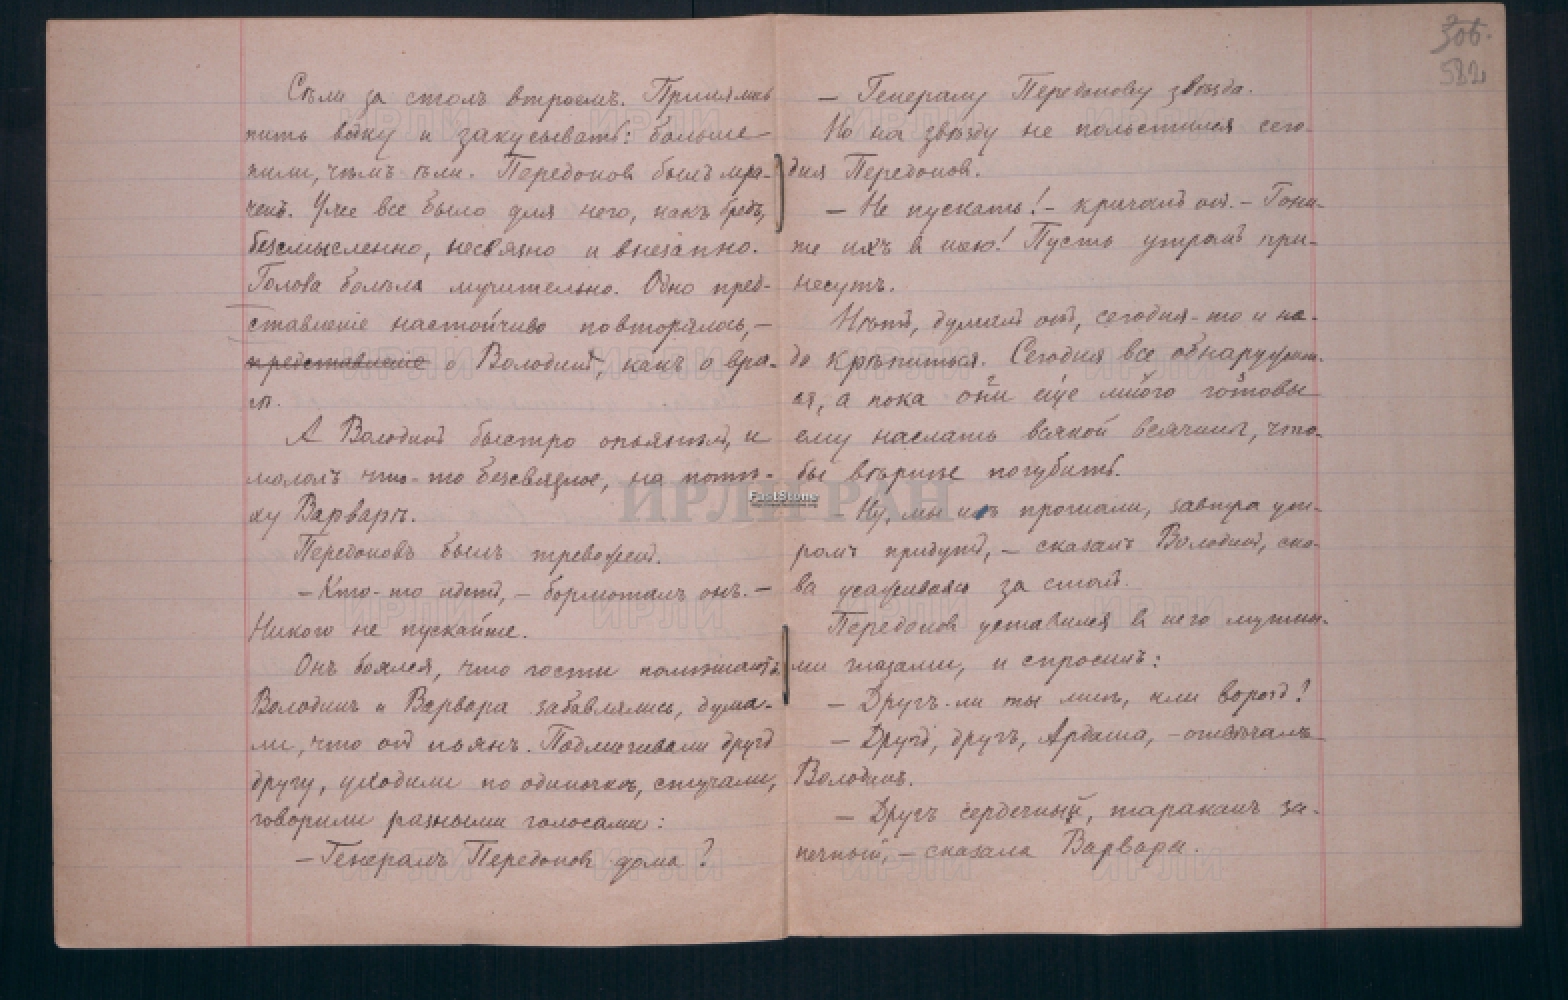 Сѣли за столъ втроемъ. Принялись
пить водку и закусывать: больше
пили, чѣмъ ѣли. Передонов былъ мра-
ченъ. Уже все было для него, какъ бредъ,
безсмысленно, несвязно и внезапно.
Голова болѣла мучительно. Одно пред-
ставленіе настойчиво повторялось, –
представленіе о Володинѣ, какъ о вра-
гѣ.
А Володинъ быстро опьянѣлъ, и
мололъ что-то безсвязное, на потѣ-
ху Варварѣ.
Передоновъ былъ тревоженъ.
– Кто-то идетъ, – бормоталъ онъ. –
Никого не пускайте.
Онъ боялся, что гости
Володинъ и Варвара забавлялись, дума-
ли, что онъ пьянъ. Подмигивали другъ
другу, уходили по одиночкѣ, стучали,
говорили разными голосами:
– Генералъ Передонов дома?
306.
582
– Генералу Передонову звѣзда.
Но на звѣзду не польстился сего-
дня Передонов.
– Не пускать! – кричалъ онъ. – Гони-
те ихъ в шею! Пусть утромъ при-
несутъ.
Нѣтъ, думалъ онъ, сегодня-то и на-
до крѣпиться. Сегодня все обнаружит-
ся, а пока они еще много готовы
ему наслать всякой всячины, что-
бы вѣрнѣе погубить.
Ну, мы ихъ прогнали, завтра ут-
ромъ придутъ, – сказалъ Володинъ, сно-
ва усаживаясь за столъ.
Передонов уставился в него мутны-
ми глазами, и спросилъ:
– Другъ-ли ты мнѣ, или врагъ?
– Другъ, другъ, Ардаша, – отвѣчалъ
Володинъ.
– Другъ сердечный, тараканъ за-
печный, – сказала Варвара.
ИРЛИ РАН
FastStone